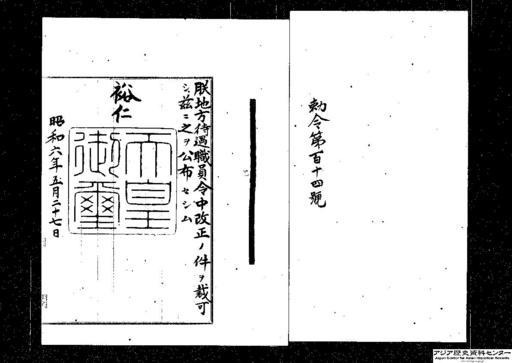 勅令第百十四號
朕地方待遇職員令中改正ノ件ヲ裁可
シ茲ニ之ヲ公布セシム
裕仁
天皇
御璽
昭和六年五月二十七日
アジア歴史資料センター
Japan Center for Asian Historical Records